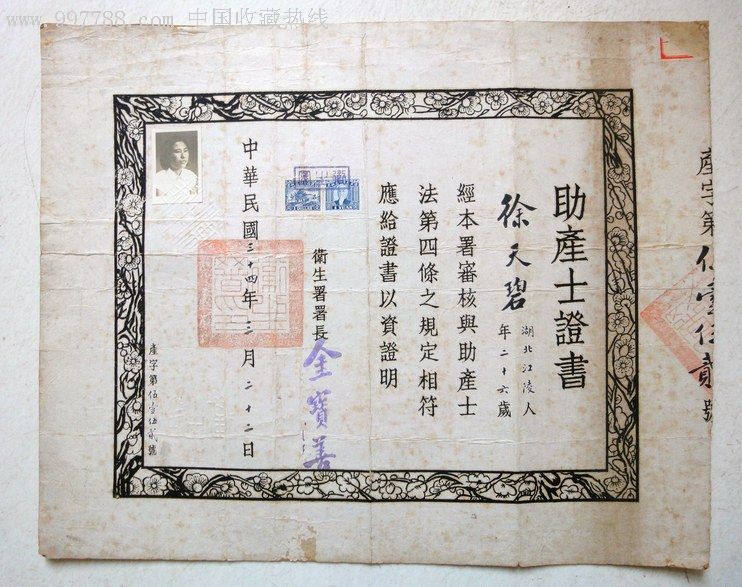 www.997788.com 中国收藏热线
產字第伍壹伍貳號
助產士證書
徐天碧
湖北江陵人
年二十六歲
經本署審核與助產士
法第四條之規定相符
應給證書以資證明
衛生署署長
金寶善
中華民國三十四年三月二十二日
產字第伍壹伍貳號